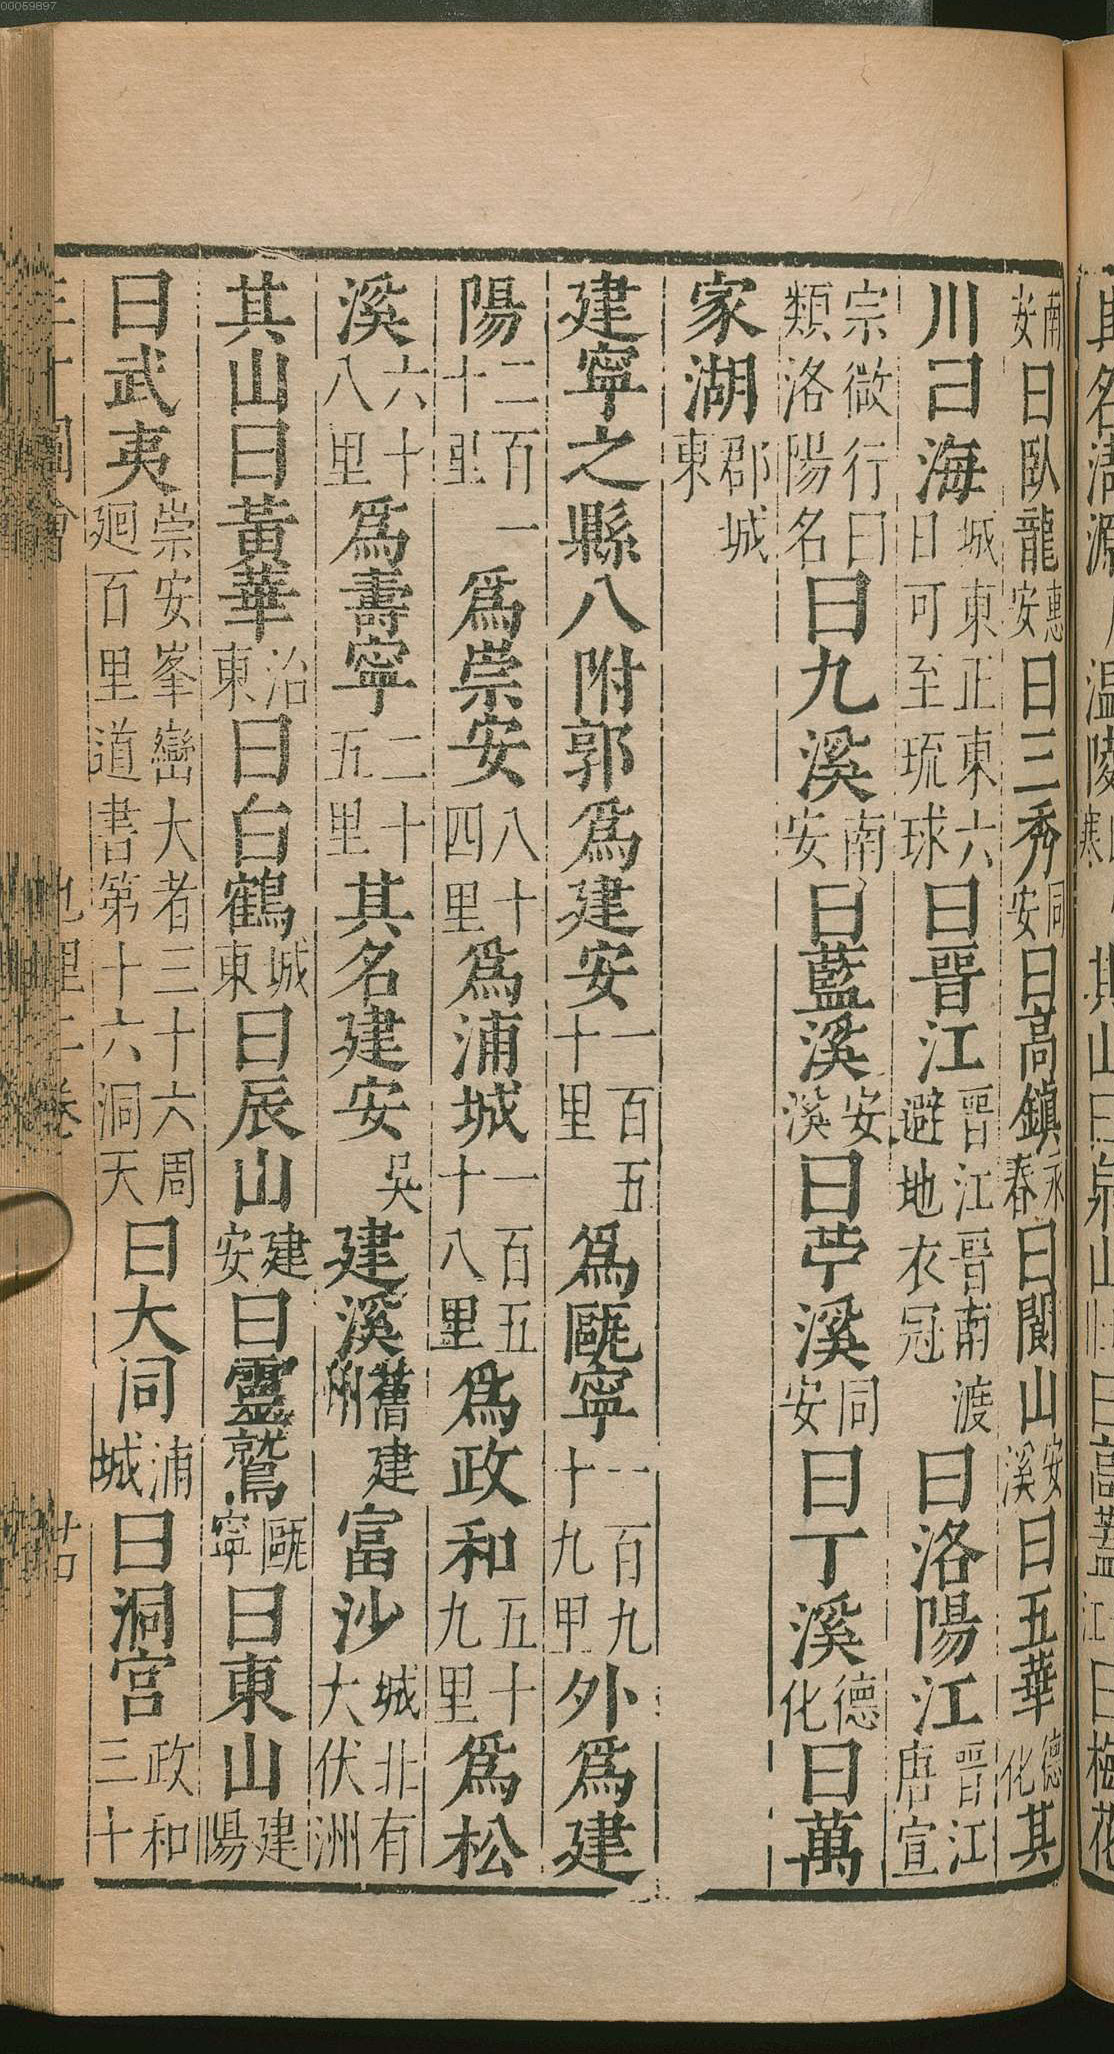 00059897
南安曰臥龍惠安曰三秀同安曰高鎮永春曰閬山安溪曰五華德化其
川曰海城東正東六日可至琉球曰晉江晉江晉南渡避地衣冠曰洛陽江晉江唐宣
宗微行曰類洛陽名曰九溪南安曰藍溪安溪曰苧溪同安曰丁溪德化曰萬
家湖郡城東
建寧之縣八附郭爲建安一百五十里爲甌寧一百九十九甲外爲建
陽二百一十里爲崇安八十四里爲浦城一百五十八里爲政和五十九里爲松
溪六十八里爲壽寧二十五里其名建安吳建溪舊建州富沙城北有大伏洲
其山曰黃華治東曰白鶴城東曰辰山建安曰靈鷲甌寧曰東山建陽
曰武夷崇安峯巒大者三十六周廻百里道書第十六洞天曰大同浦城曰洞宮政和三十